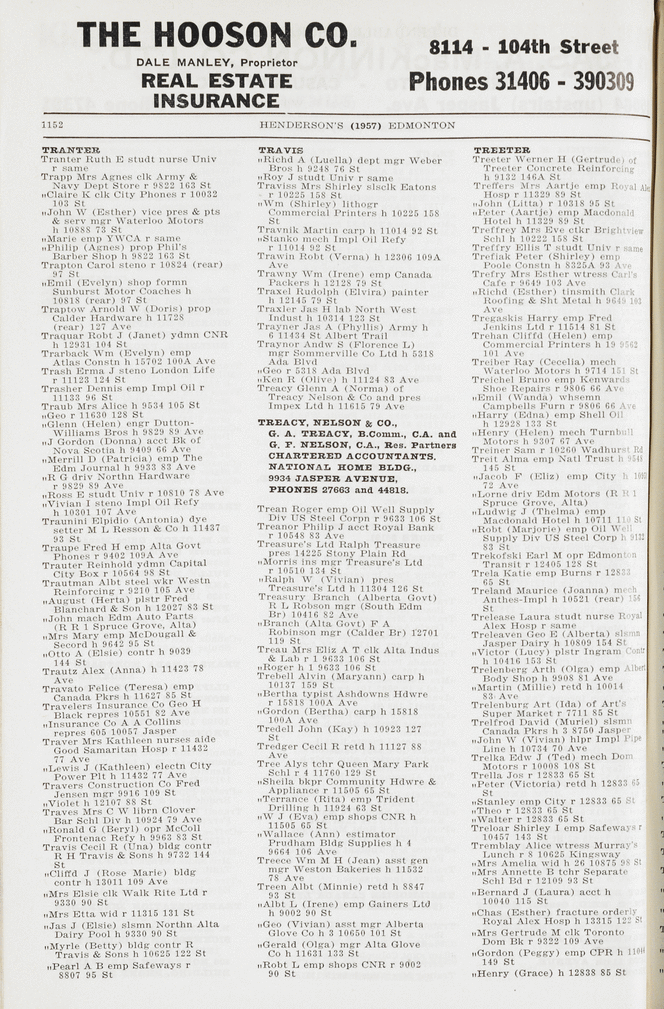 THE HOOSON CO.
DALE MANLEY, Proprietor
REAL ESTATE
INSURANCE
8114 - 104th Street
Phones 31406 - 390309
1152
HENDERSON'S (1957) EDMONTON
TRANTER
Tranter Ruth E studt nurse Univ
r same
Trapp Mrs Agnes clk Army &
Navy Dept Store r 9822 163 St
„Claire K clk City Phones r 10032
103 St
„John W (Esther) vice pres & pts
& serv mgr Waterloo Motors
h 10888 73 St
„Marie emp YWCA r same
„Philip (Agnes) prop Phil's
Barber Shop h 9822 163 St
Trapton Carol steno r 10824 (rear)
97 St
„Emil (Evelyn) shop formn
Sunburst Motor Coaches h
10818 (rear) 97 St
Traptow Arnold W (Doris) prop
Calder Hardware h 11728
(rear) 127 Ave
Traquar Robt J (Janet) ydmn CNR
h 12931 104 St
Trarback Wm (Evelyn) emp
Atlas Constn h 15702 100A Ave
Trash Erma J steno London Life
r 11123 124 St
Trasher Dennis emp Impl Oil r
11133 96 St
Traub Mrs Alice h 9534 105 St
„Geo r 11630 128 St
„Glenn (Helen) engr Dutton-
Williams Bros h 9829 89 Ave
„J Gordon (Donna) acct Bk of
Nova Scotia h 9409 66 Ave
„Merrill D (Patricia) emp The
Edm Journal h 9933 83 Ave
„R G driv Northn Hardware
r 9829 89 Ave
„Ross E studt Univ r 10810 78 Ave
„Vivian I steno Impl Oil Refy
h 10301 107 Ave
Traunini Elpidio (Antonia) dye
setter M L Resson & Co h 11437
93 St
Traupe Fred H emp Alta Govt
Phones r 9402 109A Ave
Trauter Reinhold ydmn Capital
City Box r 10564 98 St
Trautman Albt steel wkr Westn
Reinforcing r 9210 105 Ave
„August (Herta) plstr Fred
Blanchard & Son h 12027 83 St
„John mach Edm Auto Parts
(R R 1 Spruce Grove, Alta)
„Mrs Mary emp McDougall &
Secord h 9642 95 St
„Otto A (Elsie) contr h 9039
144 St
Trautz Alex (Anna) h 11423 78
Ave
Travato Felice (Teresa) emp
Canada Pkrs h 11627 85 St
Travelers Insurance Co Geo H
Black repres 10551 82 Ave
„Insurance Co A A Collins
repres 605 10057 Jasper
Traver Mrs Kathleen nurses aide
Good Samaritan Hosp r 11432
77 Ave
„Lewis J (Kathleen) electn City
Power Plt h 11432 77 Ave
Travers Construction Co Fred
Jensen mgr 9916 109 St
„Violet h 12107 88 St
Traves Mrs C W librn Clover
Bar Schl Div h 10924 79 Ave
„Ronald G (Beryl) opr McColl
Frontenac Refy h 9963 83 St
Travis Cecil R (Una) bldg contr
R H Travis & Sons h 9732 144
St
„Cliffd J (Rose Marie) bldg
contr h 13011 109 Ave
„Mrs Elsie clk Walk Rite Ltd r
9330 90 St
„Mrs Etta wid r 11315 131 St
„Jas J (Elsie) slsmn Northn Alta
Dairy Pool h 9330 90 St
„Myrle (Betty) bldg contr R
Travis & Sons h 10625 122 St
„Pearl A B emp Safeways r
8807 95 St
TRAVIS
„Richd A (Luella) dept mgr Weber
Bros h 9248 76 St
„Roy J studt Univ r same
Traviss Mrs Shirley slsclk Eatons
r 10225 158 St
„Wm (Shirley) lithogr
Commercial Printers h 10225 158
St
Travnik Martin carp h 11014 92 St
„Stanko mech Impl Oil Refy
r 11014 92 St
Trawin Robt (Verna) h 12306 109A
Ave
Trawny Wm (Irene) emp Canada
Packers h 12128 79 St
Traxel Rudolph (Elvira) painter
h 12145 79 St
Traxler Jas H lab North West
Indust h 10314 123 St
Trayner Jas A (Phyllis) Army h
6 11434 St Albert Trail
Traynor Andw S (Florence L)
mgr Sommerville Co Ltd h 5318
Ada Blvd
„Geo r 5318 Ada Blvd
„Ken R (Olive) h 11124 83 Ave
Treacy Glenn A (Norma) of
Treacy Nelson & Co and pres
Impex Ltd h 11615 79 Ave
TREACY, NELSON & CO.,
G. A. TREACY, B.Comm., C.A. and
G. F. NELSON, C.A., Res. Partners
CHARTERED ACCOUNTANTS,
NATIONAL HOME BLDG.,
9934 JASPER AVENUE,
PHONES 27663 and 44818.
Trean Roger emp Oil Well Supply
Div US Steel Corpn r 9633 106 St
Treanor Philip J acct Royal Bank
r 10548 83 Ave
Treasure's Ltd Ralph Treasure
pres 14225 Stony Plain Rd
„Morris ins mgr Treasure's Ltd
r 10510 134 St
„Ralph W (Vivian) pres
Treasure's Ltd h 11304 126 St
Treasury Branch (Alberta Govt)
R L Robson mgr (South Edm
Br) 10416 82 Ave
„Branch (Alta Govt) F A
Robinson mgr (Calder Br) 12701
119 St
Treau Mrs Eliz A T clk Alta Indus
& Lab r 1 9633 106 St
„Roger h 1 9633 106 St
Trebell Alvin (Maryann) carp h
10137 159 St
„Bertha typist Ashdowns Hdwre
r 15818 100A Ave
„Gordon (Bertha) carp h 15818
100A Ave
Tredell John (Kay) h 10923 127
St
Tredger Cecil R retd h 11127 88
Ave
Tree Alys tchr Queen Mary Park
Schl r 4 11760 129 St
„Sheila bkpr Community Hdwre &
Appliance r 11505 65 St
„Terrance (Rita) emp Trident
Drilling h 11924 63 St
„W J (Eva) emp shops CNR h
11505 65 St
„Wallace (Ann) estimator
Prudham Bldg Supplies h 4
9664 106 Ave
Treece Wm M H (Jean) asst gen
mgr Weston Bakeries h 11532
78 Ave
Treen Albt (Minnie) retd h 8847
93 St
„Albt L (Irene) emp Gainers Ltd
h 9002 90 St
„Geo (Vivian) asst mgr Alberta
Glove Co h 3 10650 101 St
„Gerald (Olga) mgr Alta Glove
Co h 11631 133 St
„Robt L emp shops CNR r 9002
90 St
TREETER
Treeter Werner H (Gertrude) of
Treeter Concrete Reinforcing
h 9132 146A St
Treffers Mrs Aartje emp Royal Alex
Hosp r 11329 89 St
„John (Litta) r 10318 95 St
„Peter (Aartje) emp Macdonald
Hotel h 11329 89 St
Treffrey Mrs Eve ctkr Brightview
Schl h 10222 158 St
Treffry Ellis T studt Univ r same
Trefiak Peter (Shirley) emp
Poole Constn h 8325A 93 Ave
Trefry Mrs Esther wtress Carl's
Cafe r 9649 103 Ave
„Richd (Esther) tinsmith Clark
Roofing & Sht Metal h 9649 103
Ave
Tregaskis Harry emp Fred
Jenkins Ltd r 11514 81 St
Trehan Cliffd (Helen) emp
Commercial Printers h 19 9562
101 Ave
Treiber Ray (Cecelia) mech
Waterloo Motors h 9714 151 St
Treichel Bruno emp Kenwards
Shoe Repairs r 9806 66 Ave
„Emil (Wanda) whsemn
Campbells Furn r 9806 66 Ave
„Harry (Edna) emp Shell Oil
h 12928 133 St
„Henry (Helen) mech Turnbull
Motors h 9307 67 Ave
Treiner Sam r 10260 Wadhurst Rd
Treit Alma emp Natl Trust h
145 St
„Jacob F (Eliz) emp City h
72 Ave
„Lorne driv Edm Motors (R R 1
Spruce Grove, Alta)
„Ludwig J (Thelma) emp
Macdonald Hotel h 10711 110 St
„Robt (Marjorie) emp Oil Well
Supply Div US Steel Corp h 9132
83 St
Trekofski Earl M opr Edmonton
Transit r 12405 128 St
Trela Katie emp Burns r 12833
65 St
Treland Maurice (Joanna) mech
Anthes-Impl h 10521 (rear) 156
St
Trelease Laura studt nurse Royal
Alex Hosp r same
Treleaven Geo E (Alberta) slsmn
Jasper Dairy h 10809 154 St
„Victor (Lucy) plstr Ingram Contr
h 10416 153 St
Trelenberg Arth (Olga) emp Albert
Body Shop h 9908 81 Ave
„Martin (Millie) retd h 10014
83 Ave
Trelenburg Art (Ida) of Art's
Super Market r 7711 85 St
Trelfrod David (Muriel) slsmn
Canada Pkrs h 3 8750 Jasper
„John W (Vivian) hlpr Impl Pipe
Line h 10734 70 Ave
Trelka Edw J (Ted) mech Dom
Motors r 10008 108 St
Trella Jos r 12833 65 St
„Peter (Victoria) retd h 12833 65
St
„Stanley emp City r 12833 65 St
„Theo r 12833 65 St
„Walter r 12833 65 St
Treloar Shirley I emp Safeways r
10457 143 St
Tremblay Alice wtress Murray's
Lunch r 8 10625 Kingsway
„Mrs Amelia wid h 26 10875 98 St
„Mrs Annette B tchr Separate
Schl Bd r 12109 93 St
„Bernard J (Laura) acct h
10040 115 St
„Chas (Esther) fracture orderly
Royal Alex Hosp h 13315 122 St
„Mrs Gertrude M clk Toronto
Dom Bk r 9322 109 Ave
„Gordon (Peggy) emp CPR h
149 St
„Henry (Grace) h 12838 85 St